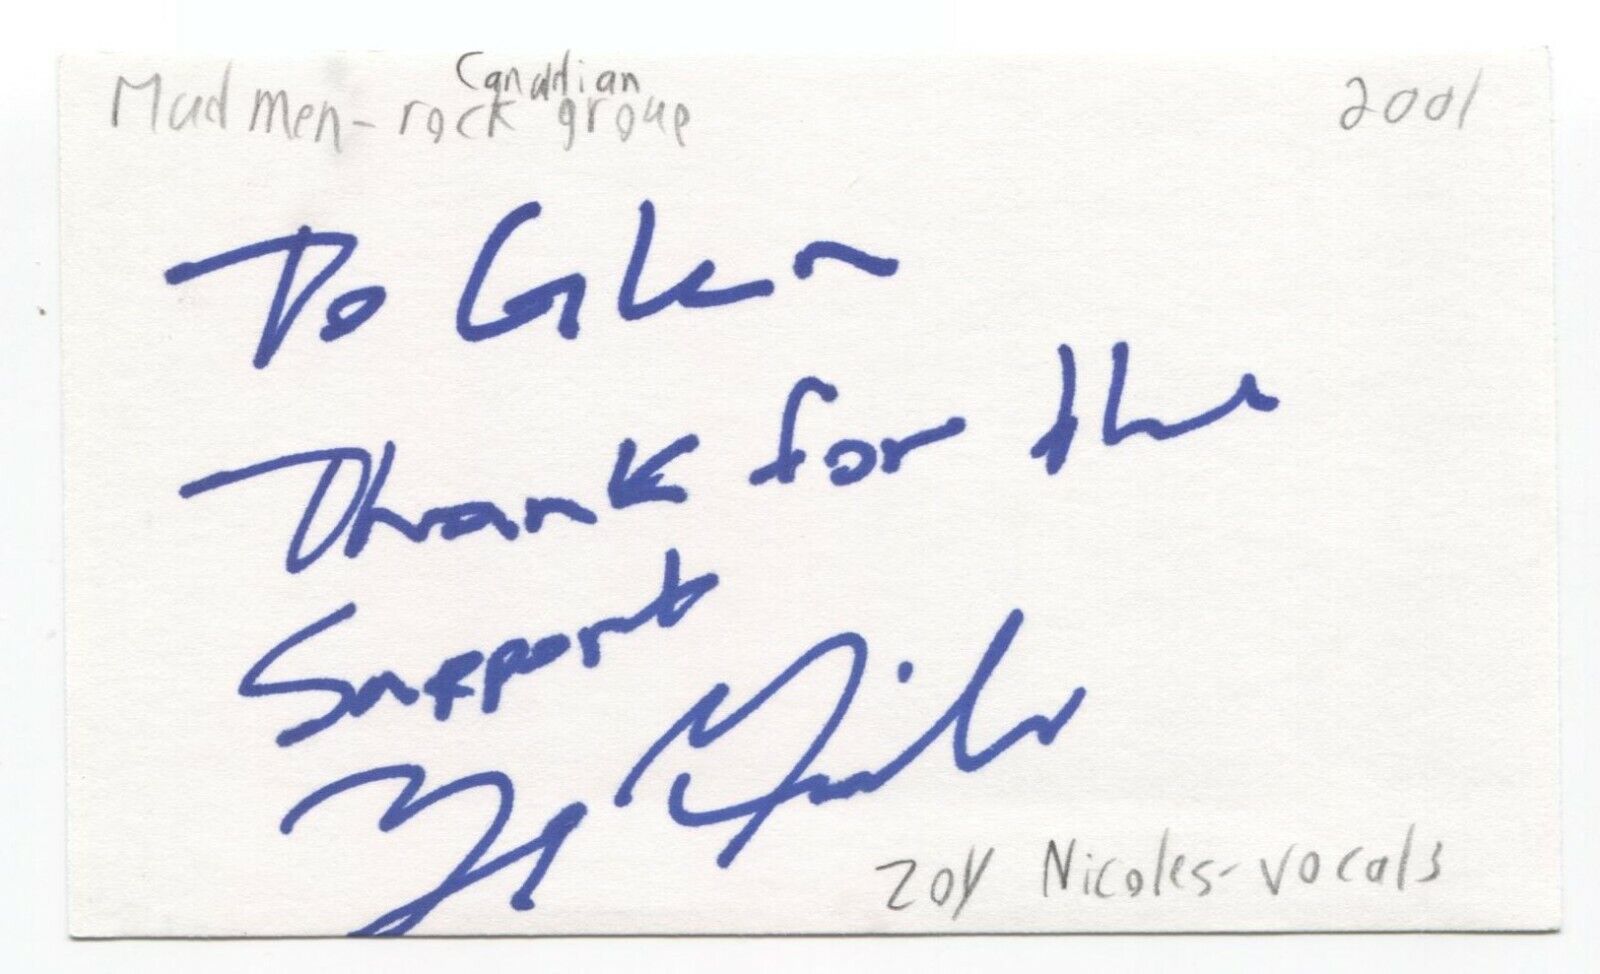 Mud men - Canadian rock group
2001
To Glen
Thank for the
Support
Zoy Nicoles - vocals